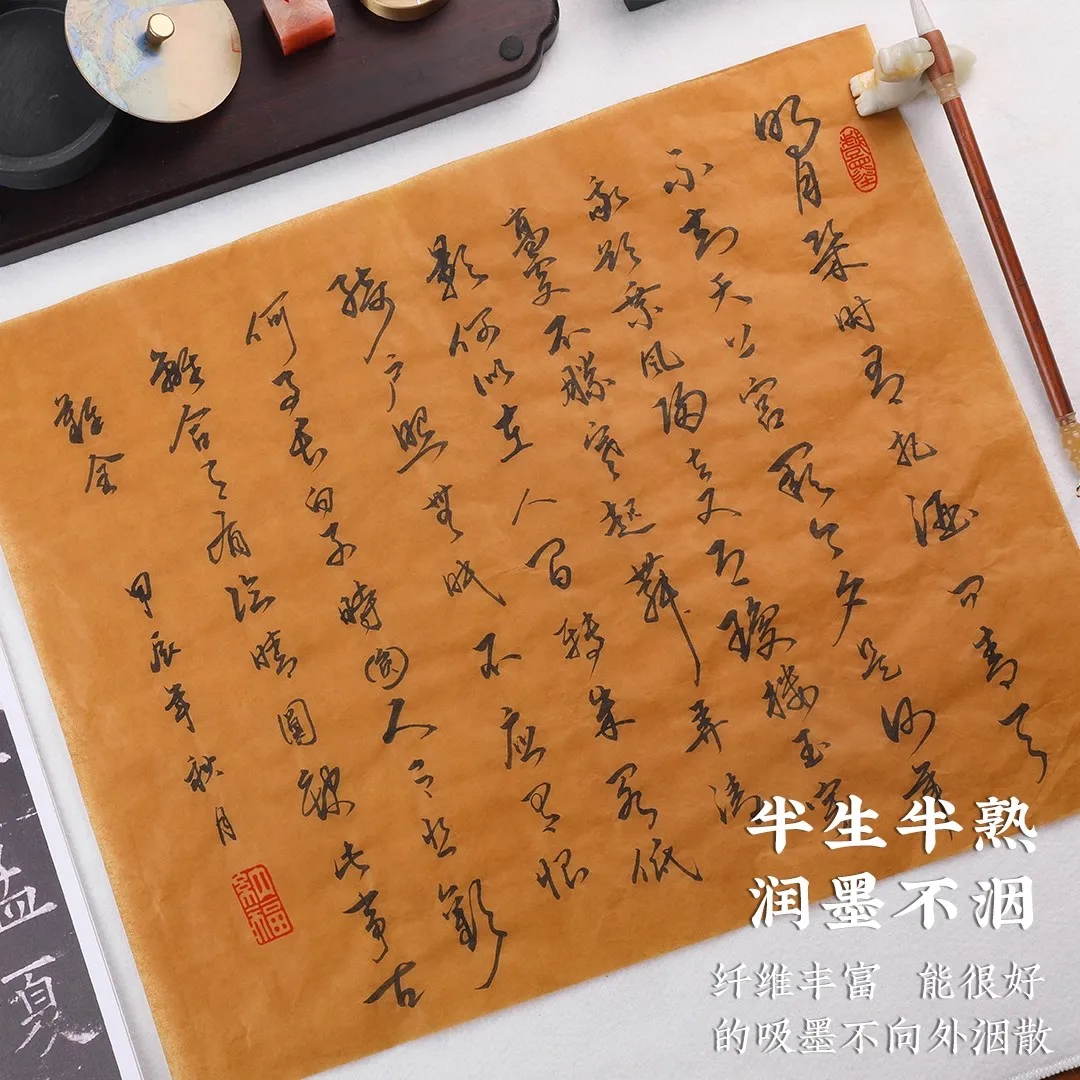 明月幾时有把酒问青天
不知天上宫阙今夕是何年
我欲乘风归去又恐瓊樓玉宇
高处不勝寒起舞弄清
影何似在人间轉朱阁低
綺户照無眠不應有恨
何事長向别時圓人有悲歡
離合月有陰晴圓缺此事古
難全
甲辰年秋月
孟夏
半生半熟
润墨不洇
纤维丰富 能很好
的吸墨不向外洇散